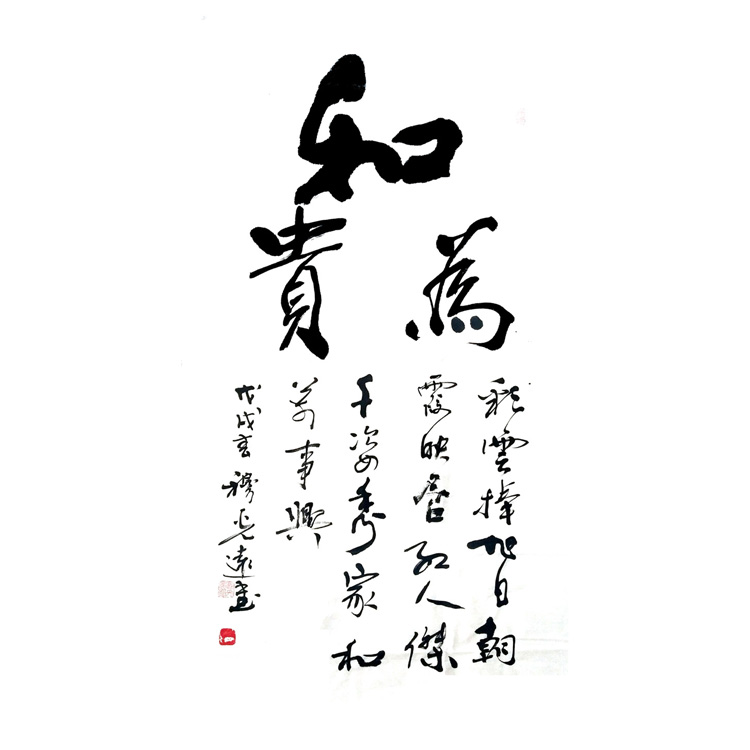 和
為貴
彩雲捧旭日朝
霞映紅人傑
千姿秀家和
萬事興
戊戌穆光遠書